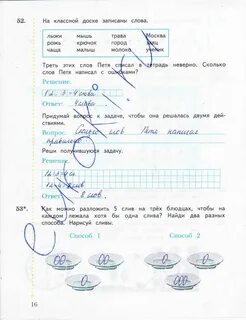 52. На классной доске записаны слова.
лыжи мышь трава Москва
рожь крючок город заяц
чаща малыш молоко ученик
Треть этих слов Петя списал в тетрадь неверно. Сколько
слов Петя написал с ошибками?
Решение.
12:3=4 слова
Ответ: 4 слова
Придумай вопрос к задаче, чтобы она решалась двумя
действиями.
Вопрос. Сколько слов Петя написал
правильно
Реши получившуюся задачу.
Решение.
12:3=4 сл
12-4=8 слов
Ответ: 8 слов.
53*. Как можно разложить 5 слив на трёх блюдцах, чтобы на
каждом лежала хотя бы одна слива? Найди два разных
способа. Нарисуй сливы.
Способ 1 Способ 2
16